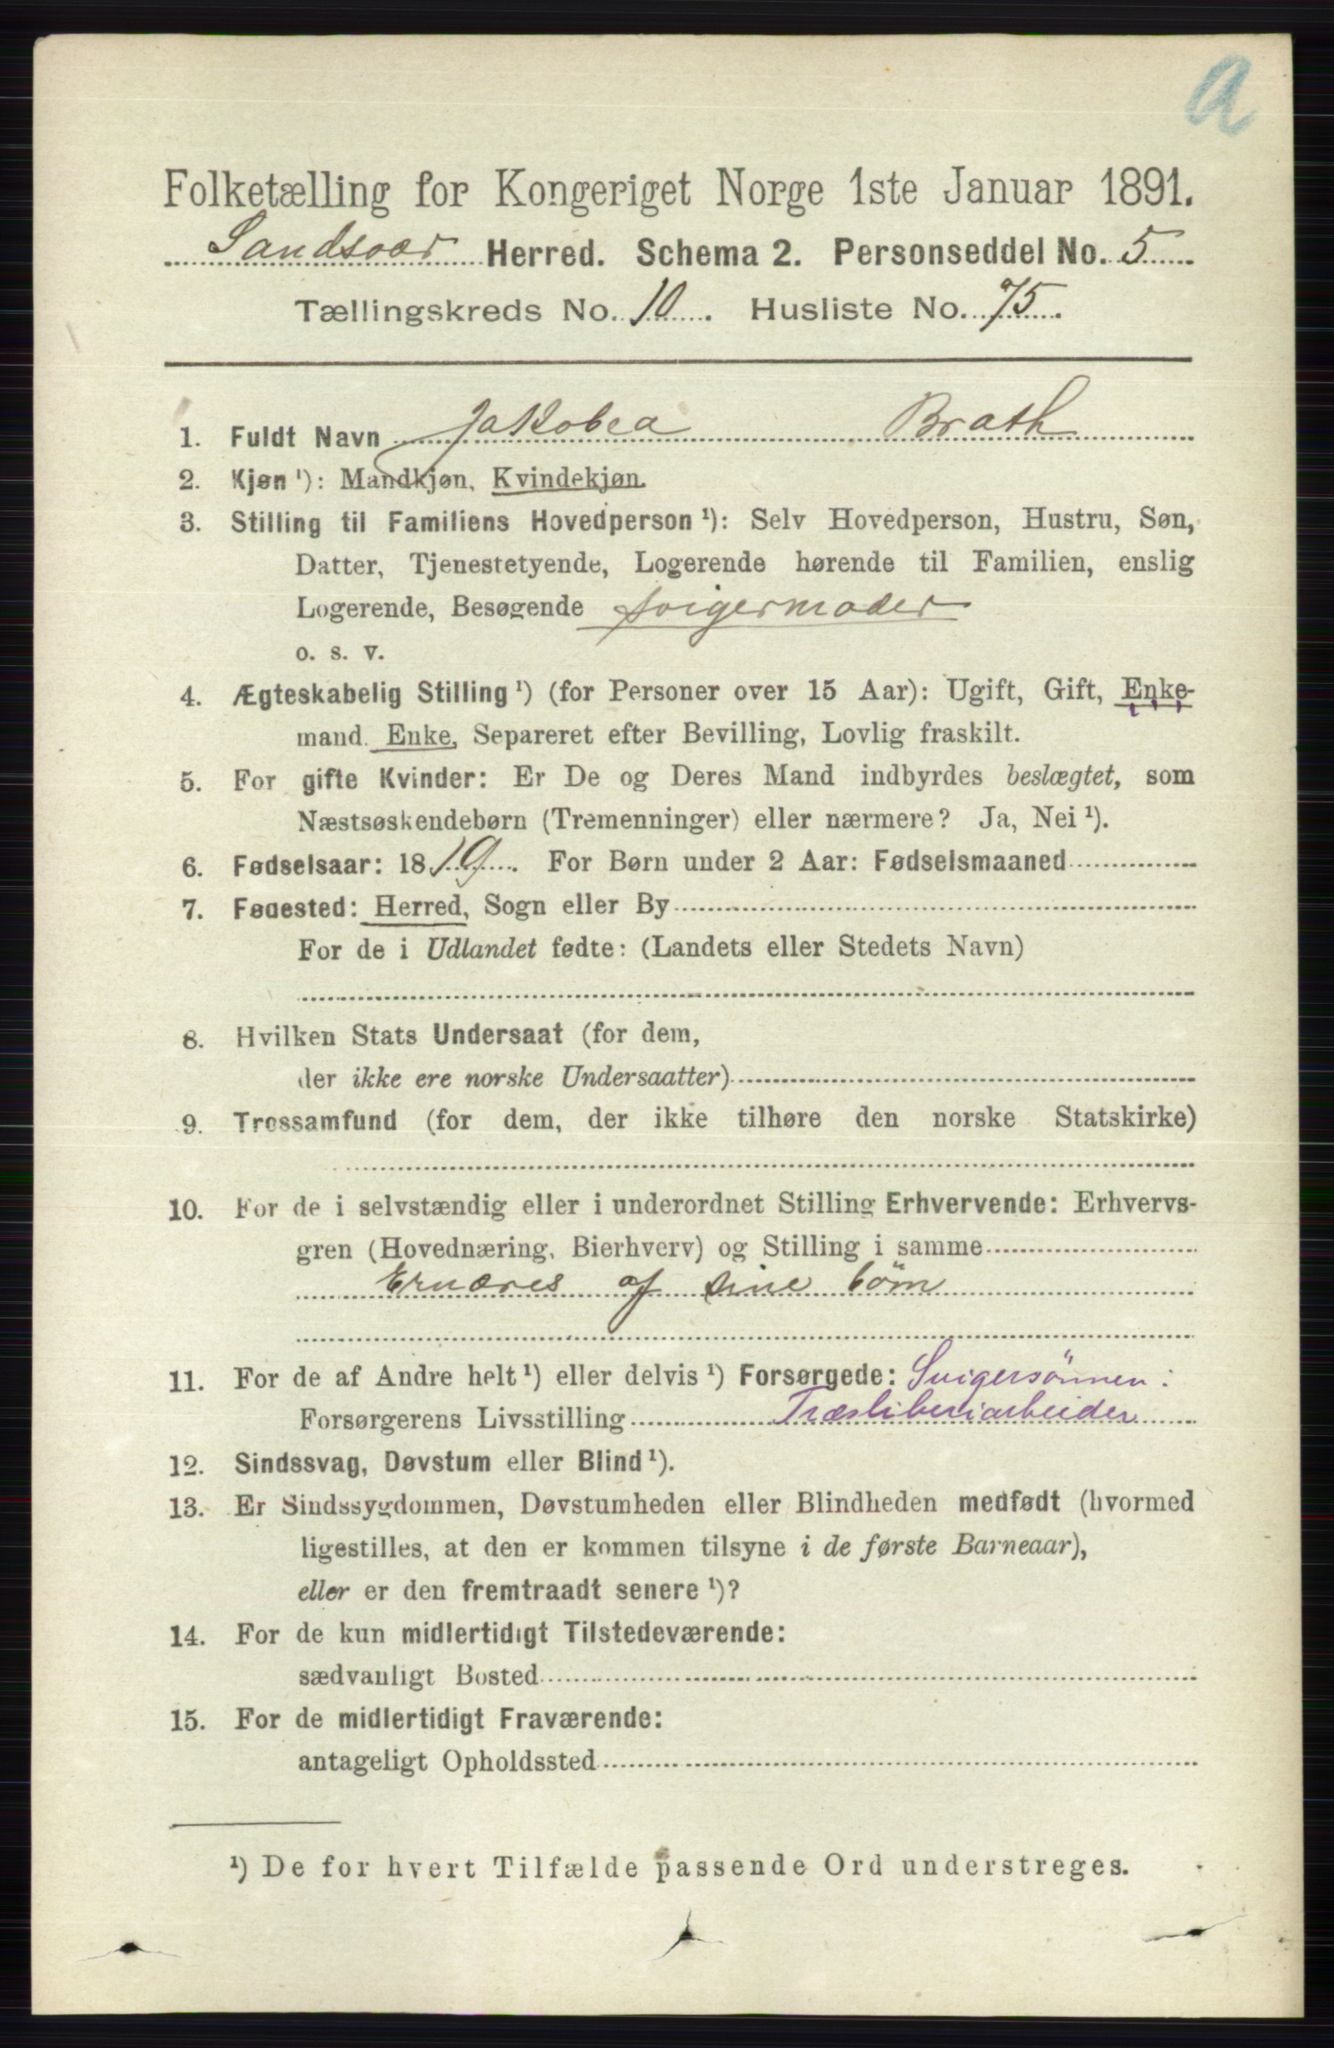 a
Folketælling for Kongeriget Norge 1ste Januar 1891.
Sandsvær Herred. Schema 2. Personseddel No. 5
Tællingskreds No. 10. Husliste No. 75.
1. Fuldt Navn Jakobea Brath
2. Kjøn ¹): Mandkjøn, Kvindekjøn.
3. Stilling til Familiens Hovedperson ¹): Selv Hovedperson, Hustru, Søn,
Datter, Tjenestetyende, Logerende hørende til Familien, enslig
Logerende, Besøgende svigermoder
o. s. v.
4. Ægteskabelig Stilling ¹) (for Personer over 15 Aar): Ugift, Gift, Enke-
mand, Enke, Separeret efter Bevilling, Lovlig fraskilt.
5. For gifte Kvinder: Er De og Deres Mand indbyrdes beslægtet, som
Næstsøskendebørn (Tremenninger) eller nærmere? Ja, Nei ¹).
6. Fødselsaar: 1819. For Børn under 2 Aar: Fødselsmaaned
7. Fødested: Herred, Sogn eller By
For de i Udlandet fødte: (Landets eller Stedets Navn)
8. Hvilken Stats Undersaat (for dem,
der ikke ere norske Undersaatter)
9. Trossamfund (for dem, der ikke tilhøre den norske Statskirke)
10. For de i selvstændig eller i underordnet Stilling Erhvervende: Erhvervs-
gren (Hovednæring, Bierhverv) og Stilling i samme
Ernæres af sine börn
11. For de af Andre helt ¹) eller delvis ¹) Forsørgede: Svigersønnen:
Forsørgerens Livsstilling Træsliberiarbeider
12. Sindssvag, Døvstum eller Blind ¹).
13. Er Sindssygdommen, Døvstumheden eller Blindheden medfødt (hvormed
ligestilles, at den er kommen tilsyne i de første Barneaar),
eller er den fremtraadt senere ¹)?
14. For de kun midlertidigt Tilstedeværende:
sædvanligt Bosted
15. For de midlertidigt Fraværende:
antageligt Opholdssted
¹) De for hvert Tilfælde passende Ord understreges.